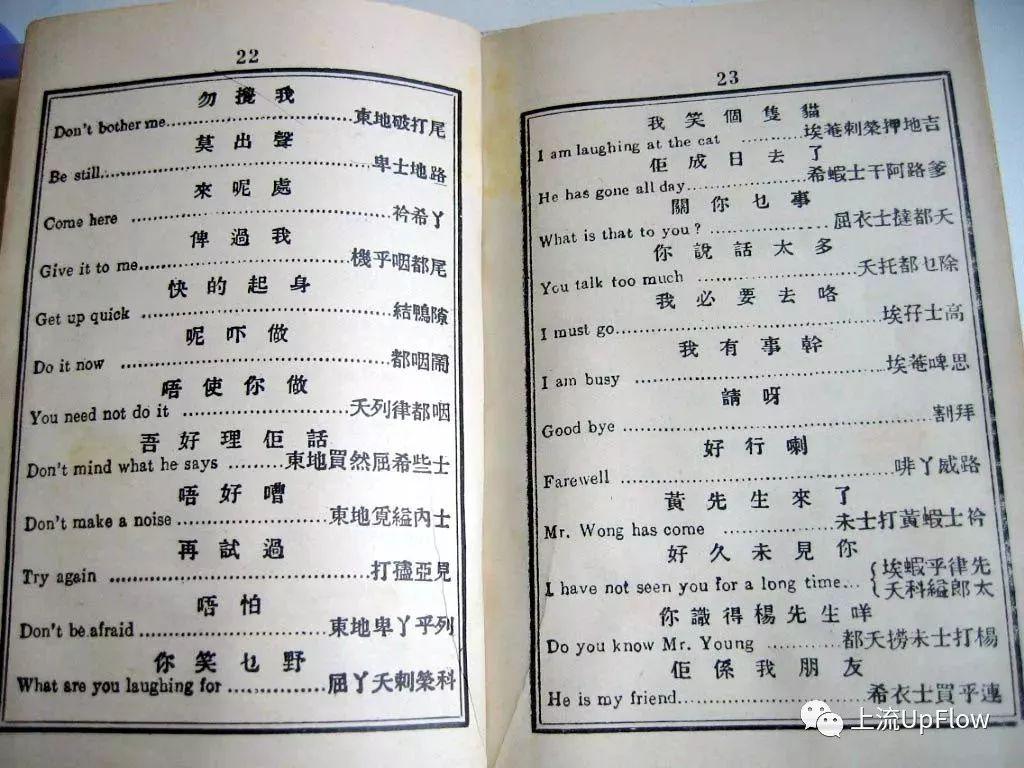 22
勿攪我
Don't bother me...............東地破打尾
莫出聲
Be still...............卑士地路
來呢處
Come here ...............衿希丫
俾過我
Give it to me...............機乎咽都尾
快的起身
Get up quick ...............結鴨隙
呢吓做
Do it now ...............都咽鬧
唔使你做
You need not do it ...............夭列律都咽
吾好理佢話
Don't mind what he says ...............東地買然屈希些士
唔好嘈
Don't make a noise...............東地覓縊內士
再試過
Try again ...............打孻亞見
唔怕
Don't be afraid...............東地卑丫乎列
你笑乜野
What are you laughing for ...............屈丫夭剌榮科
23
我笑個隻貓
I am laughing at the cat ...............埃菴剌榮押地吉
佢成日去了
He has gone all day...............希蝦士干阿路爹
關你乜事
What is that to you ? ...............屈衣士撻都夭
你說話太多
You talk too much ...............夭托都乜除
我必要去咯
I must go...............埃孖士高
我有事幹
I am busy ...............埃菴啤思
請呀
Good bye ...............割拜
好行喇
Farewell ...............啡丫威路
黃先生來了
Mr. Wong has come ...............未士打黃蝦士衿
好久未見你
I have not seen you for a long time... { 埃蝦乎律先
夭科縊郎太
你識得楊先生咩
Do you know Mr. Young ...............都夭撈未士打楊
佢係我朋友
He is my friend...............希衣士買乎連
上流UpFlow